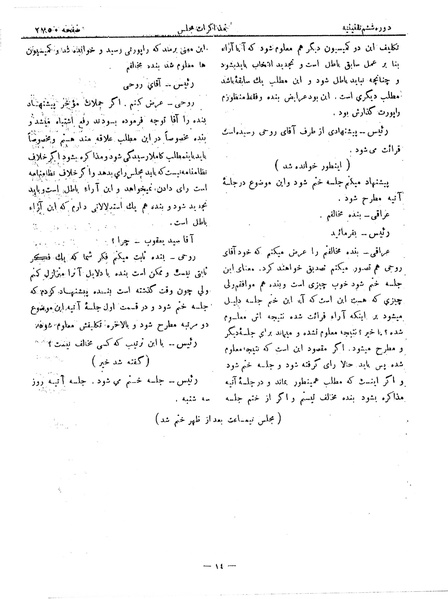 دوره ششم تقنینیه
مذاکرات مجلس
صفحه ۲۷۵۰
تکلیف این دو کمیسیون دیگر هم معلوم شود که آیا آراء
بنا بر عمل سابق باطل است و تجدید انتخاب باید بشود
و چنانچه نباید باطل شود و این مطلب یك سابقه باشد
مطلب دیگری است. این بود عرایض بنده و فقط منظورم
راپورت گذارش بود.
رئیس ــ پیشنهادی از طرف آقای روحی رسیده است
قرائت می شود.
( اینطور خوانده شد )
پیشنهاد میکنم جلسه ختم شود و این موضوع در جلسهٔ
آتیه مطرح شود.
عراقی ــ بنده مخالفم.
رئیس ــ بفرمائید
عراقی ــ بنده مخالفم را عرض میکنم که خود آقای
روحی هم تصور میکنم تصدیق خواهند کرد. معنای این
جلسه ختم شود خوب چیزی است و بنده هم موافقم ولی
چیزی که هست این است که آیا این ختم جلسه دلیل
میشود بر اینکه آراء قرائت شده نتیجه اش معلوم
شده؟ یا خیر؟ نتیجه معلوم نشده و میماند برای جلسهٔ دیگر
و مطرح میشود. اگر مقصود این است که نتیجه معلوم
شده پس باید حالا رای گرفته شود و جلسه ختم شود
و اگر اینست که مطلب همینطور بماند و در جلسهٔ آتیه
مذاکره بشود بنده مخالف نیستم و اگر از ختم جلسه
این معنی برمند که راپورتی رسید و خوانده شد و کمیسیون
ها معلوم شد بنده مخالفم
رئیس ــ آقای روحی
روحی ــ عرض کنم. اگر جملات مؤخر پیشنهاد
بنده را آقا توجه فرموده بودند رفع اشتباه میشد و
بنده مخصوصاً در این مطلب علاقه مند هستم و مخصوصاً
باید باین مطلب کاملا رسیدگی شود و مذاکره بشود اگر خلاف
نظامنامه نیست که باید مجلس رای بدهد و اگر خلاف نظامنامه
است رای دادن نمیخواهد و این آراء باطل است و باید
تجدید شود و بنده هم یك استدلالاتی دارم که این آراء
باطل است.
آقا سید یعقوب ــ چرا؟
روحی ــ بنده ثابت میکنم فکر شما که یك فکر
ثابتی نیست و ممکن است بنده با دلایل آنرا متزلزل کنم
ولی چون وقت گذشته است بنده پیشنهاد کردم که
جلسه ختم شود و در قسمت اول جلسهٔ آتیه این موضوع
دو مرتبه مطرح شود و بالاخره تکلیفش معلوم شود
رئیس ــ با این ترتیب که کسی مخالف نیست؟
( گفته شد خیر )
رئیس ــ جلسه ختم می شود. جلسه آتیه روز
سه شنبه.
( مجلس نیمساعت بعد از ظهر ختم شد )
ــ ۱٤ ــ